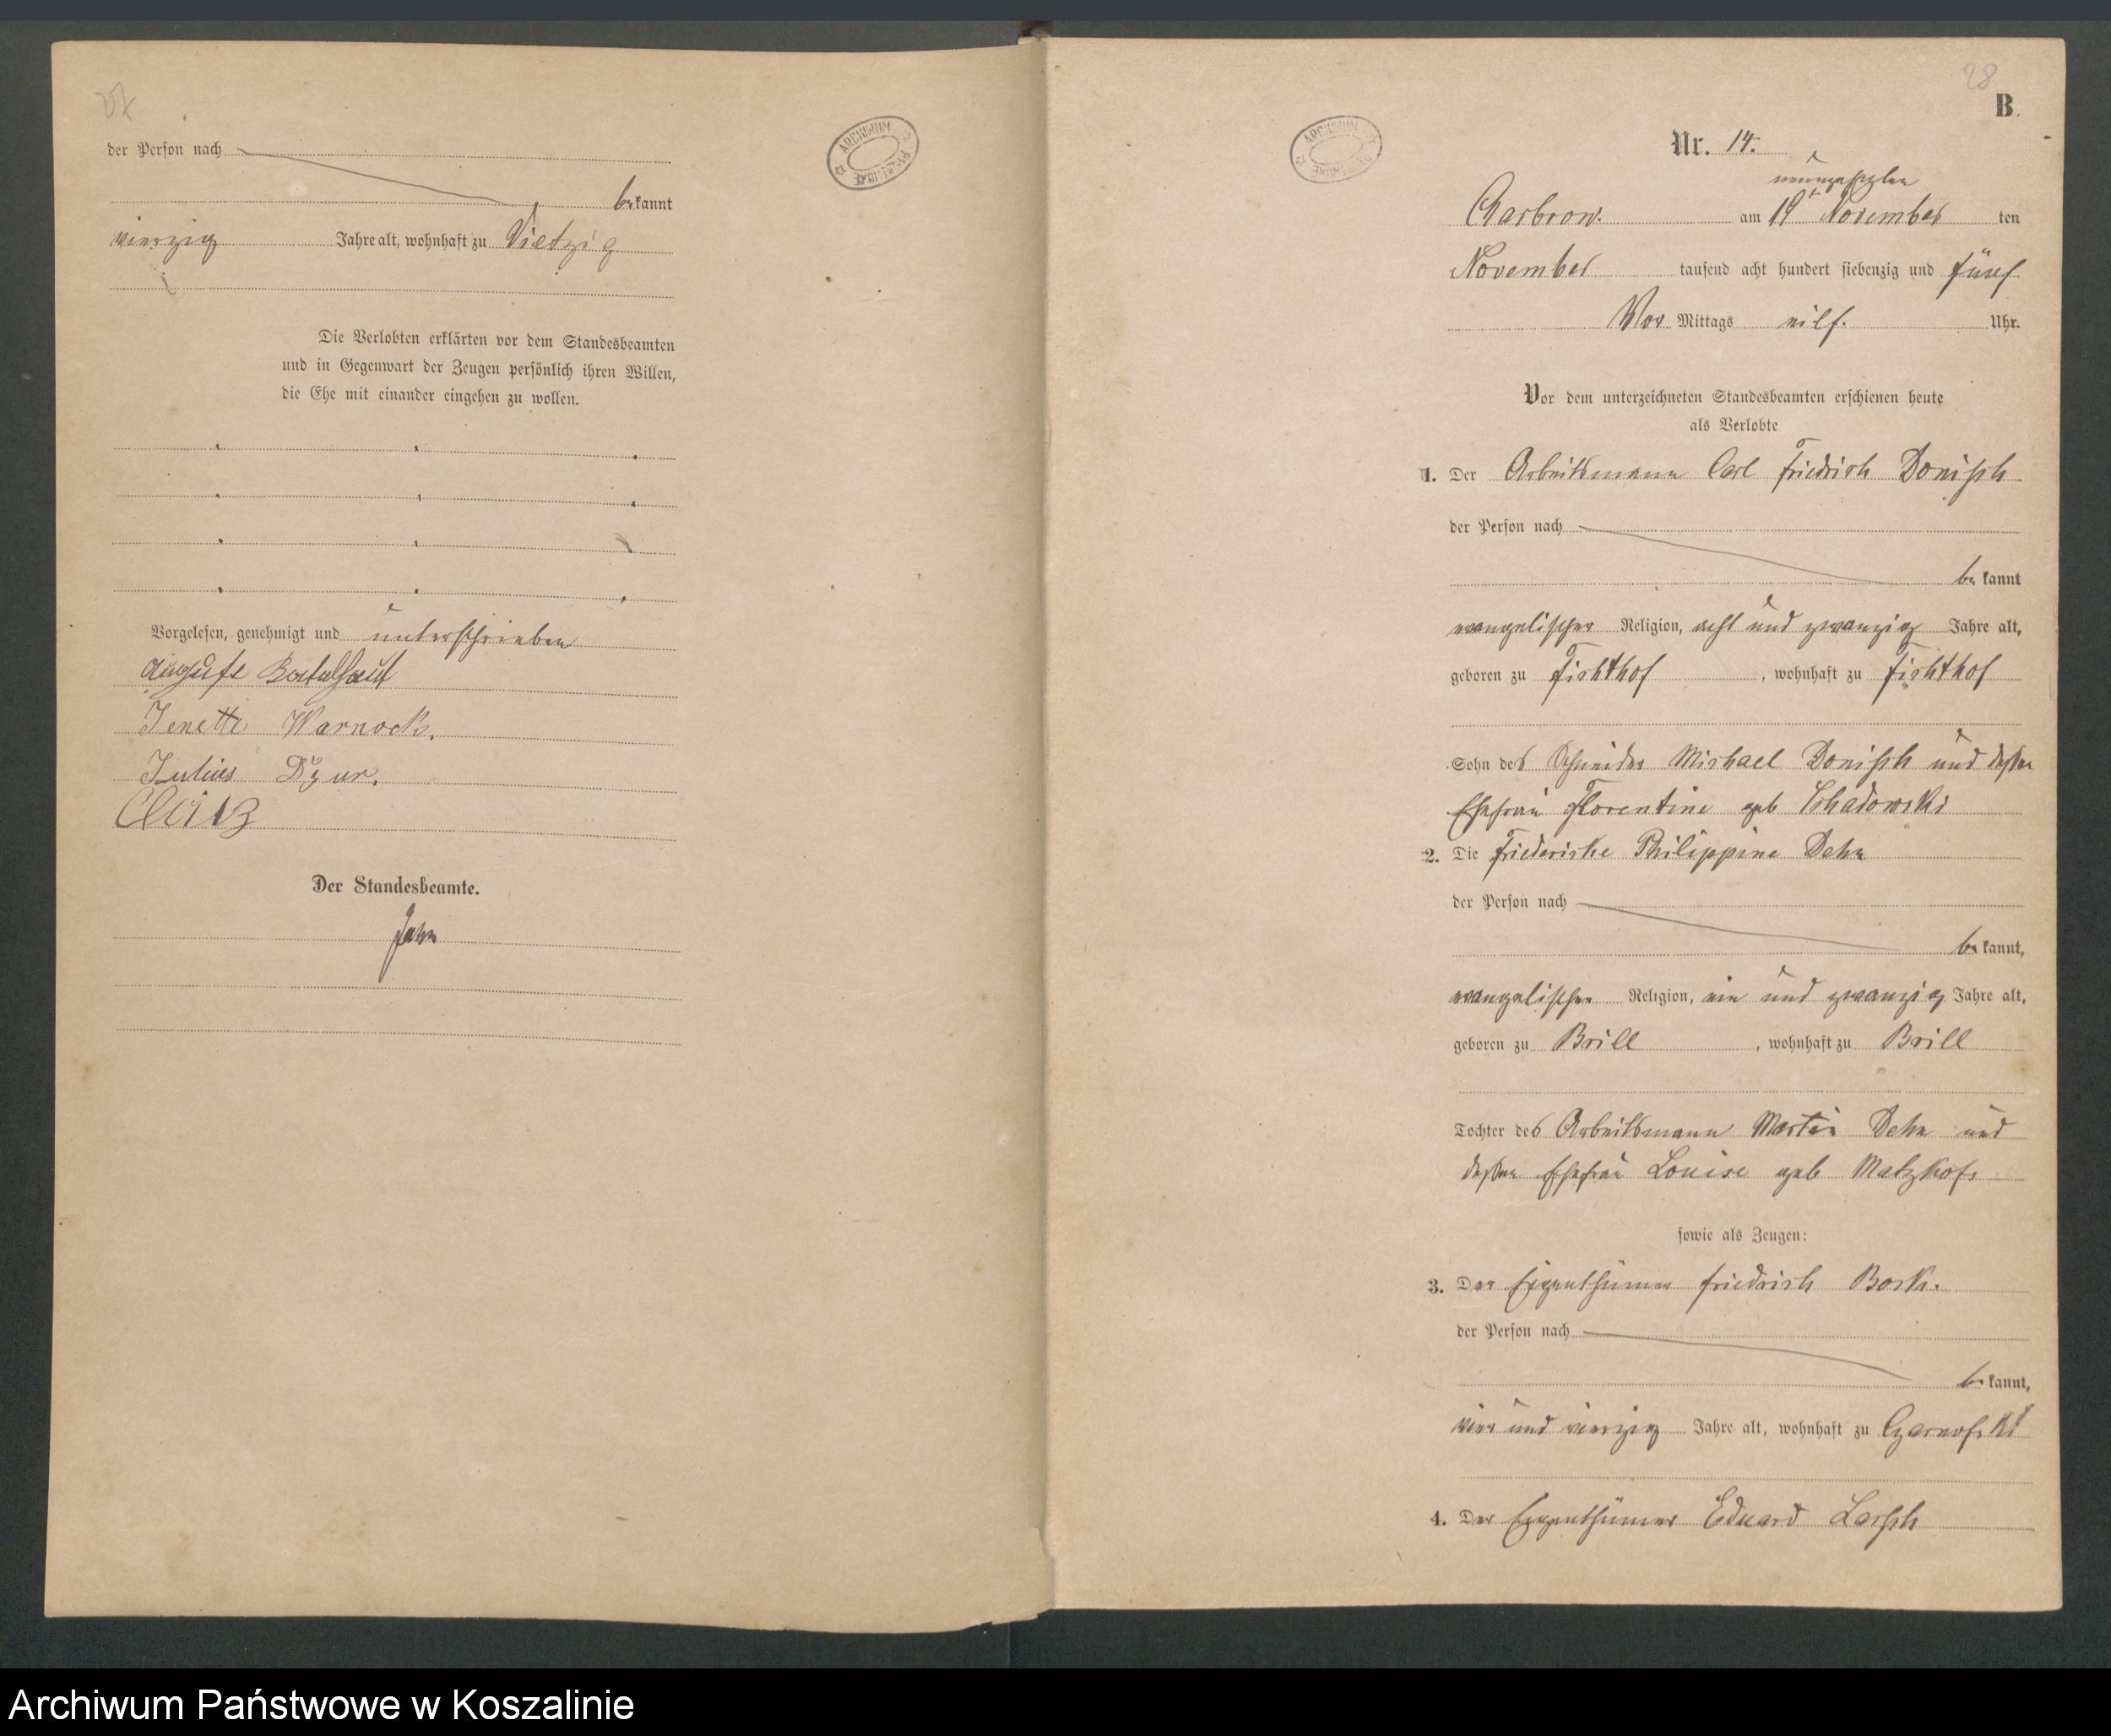 der Person nach
bekannt
vierzig Jahre alt, wohnhaft zu Vietzig
Die Verlobten erklärten vor dem Standesbeamten
und in Gegenwart der Zeugen persönlich ihren Willen,
die Ehe mit einander eingehen zu wollen.
Vorgelesen, genehmigt und unterschrieben
Auguste
Jenette Warnock.
Julius
Der Standesbeamte.
Jahn
28
B.
Nr. 14.
neunzehnten
Charbrow. am 19 November ten
November tausend acht hundert siebenzig und fünf
Vor Mittags eilf. Uhr.
Vor dem unterzeichneten Standesbeamten erschienen heute
als Verlobte
1. Der Arbeitsmann Carl Friedrich Donisch
der Person nach
bekannt
evangelischer Religion, acht und zwanzig Jahre alt,
geboren zu Fichthof, wohnhaft zu Fichthof
Sohn des Schneider Michael Donisch und dessen
Ehefrau Florentine geb Schadowski
2. Die Friedericke Philippine Dehn
der Person nach
bekannt,
evangelischer Religion, ein und zwanzig Jahre alt,
geboren zu Brill, wohnhaft zu Brill
Tochter des Arbeitsmann Martin Dehn und
dessen Ehefrau Louise geb
sowie als Zeugen:
3. Der Eigenthümer Friedrich Bork.
der Person nach
bekannt,
vier und vierzig Jahre alt, wohnhaft zu
4. Der Eigenthümer Eduard Larsch
ARCHIWUM
ARCHIWUM
Archiwum Państwowe w Koszalinie